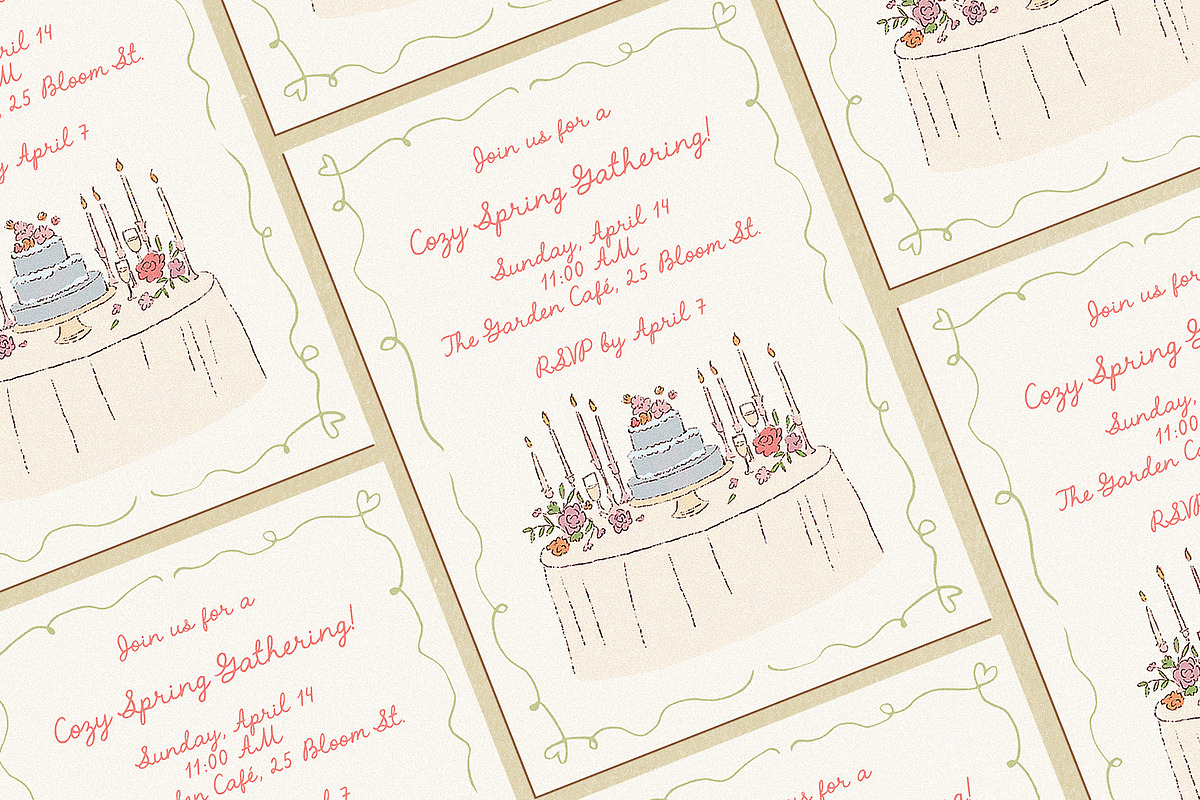 ril 14
M
, 25 Bloom St.
y April 7
Join us for a
Cozy Spring Gathering!
Sunday, April 14
11:00 AM
The Garden Café, 25 Bloom St.
RSVP by April 7
Join us for
Cozy Spring G
Sunday,
11:00
The Garden Ca
RSVP
Join us for a
Cozy Spring Gathering!
Sunday, April 14
11:00 AM
den Café, 25 Bloom St.
l 7
s for a